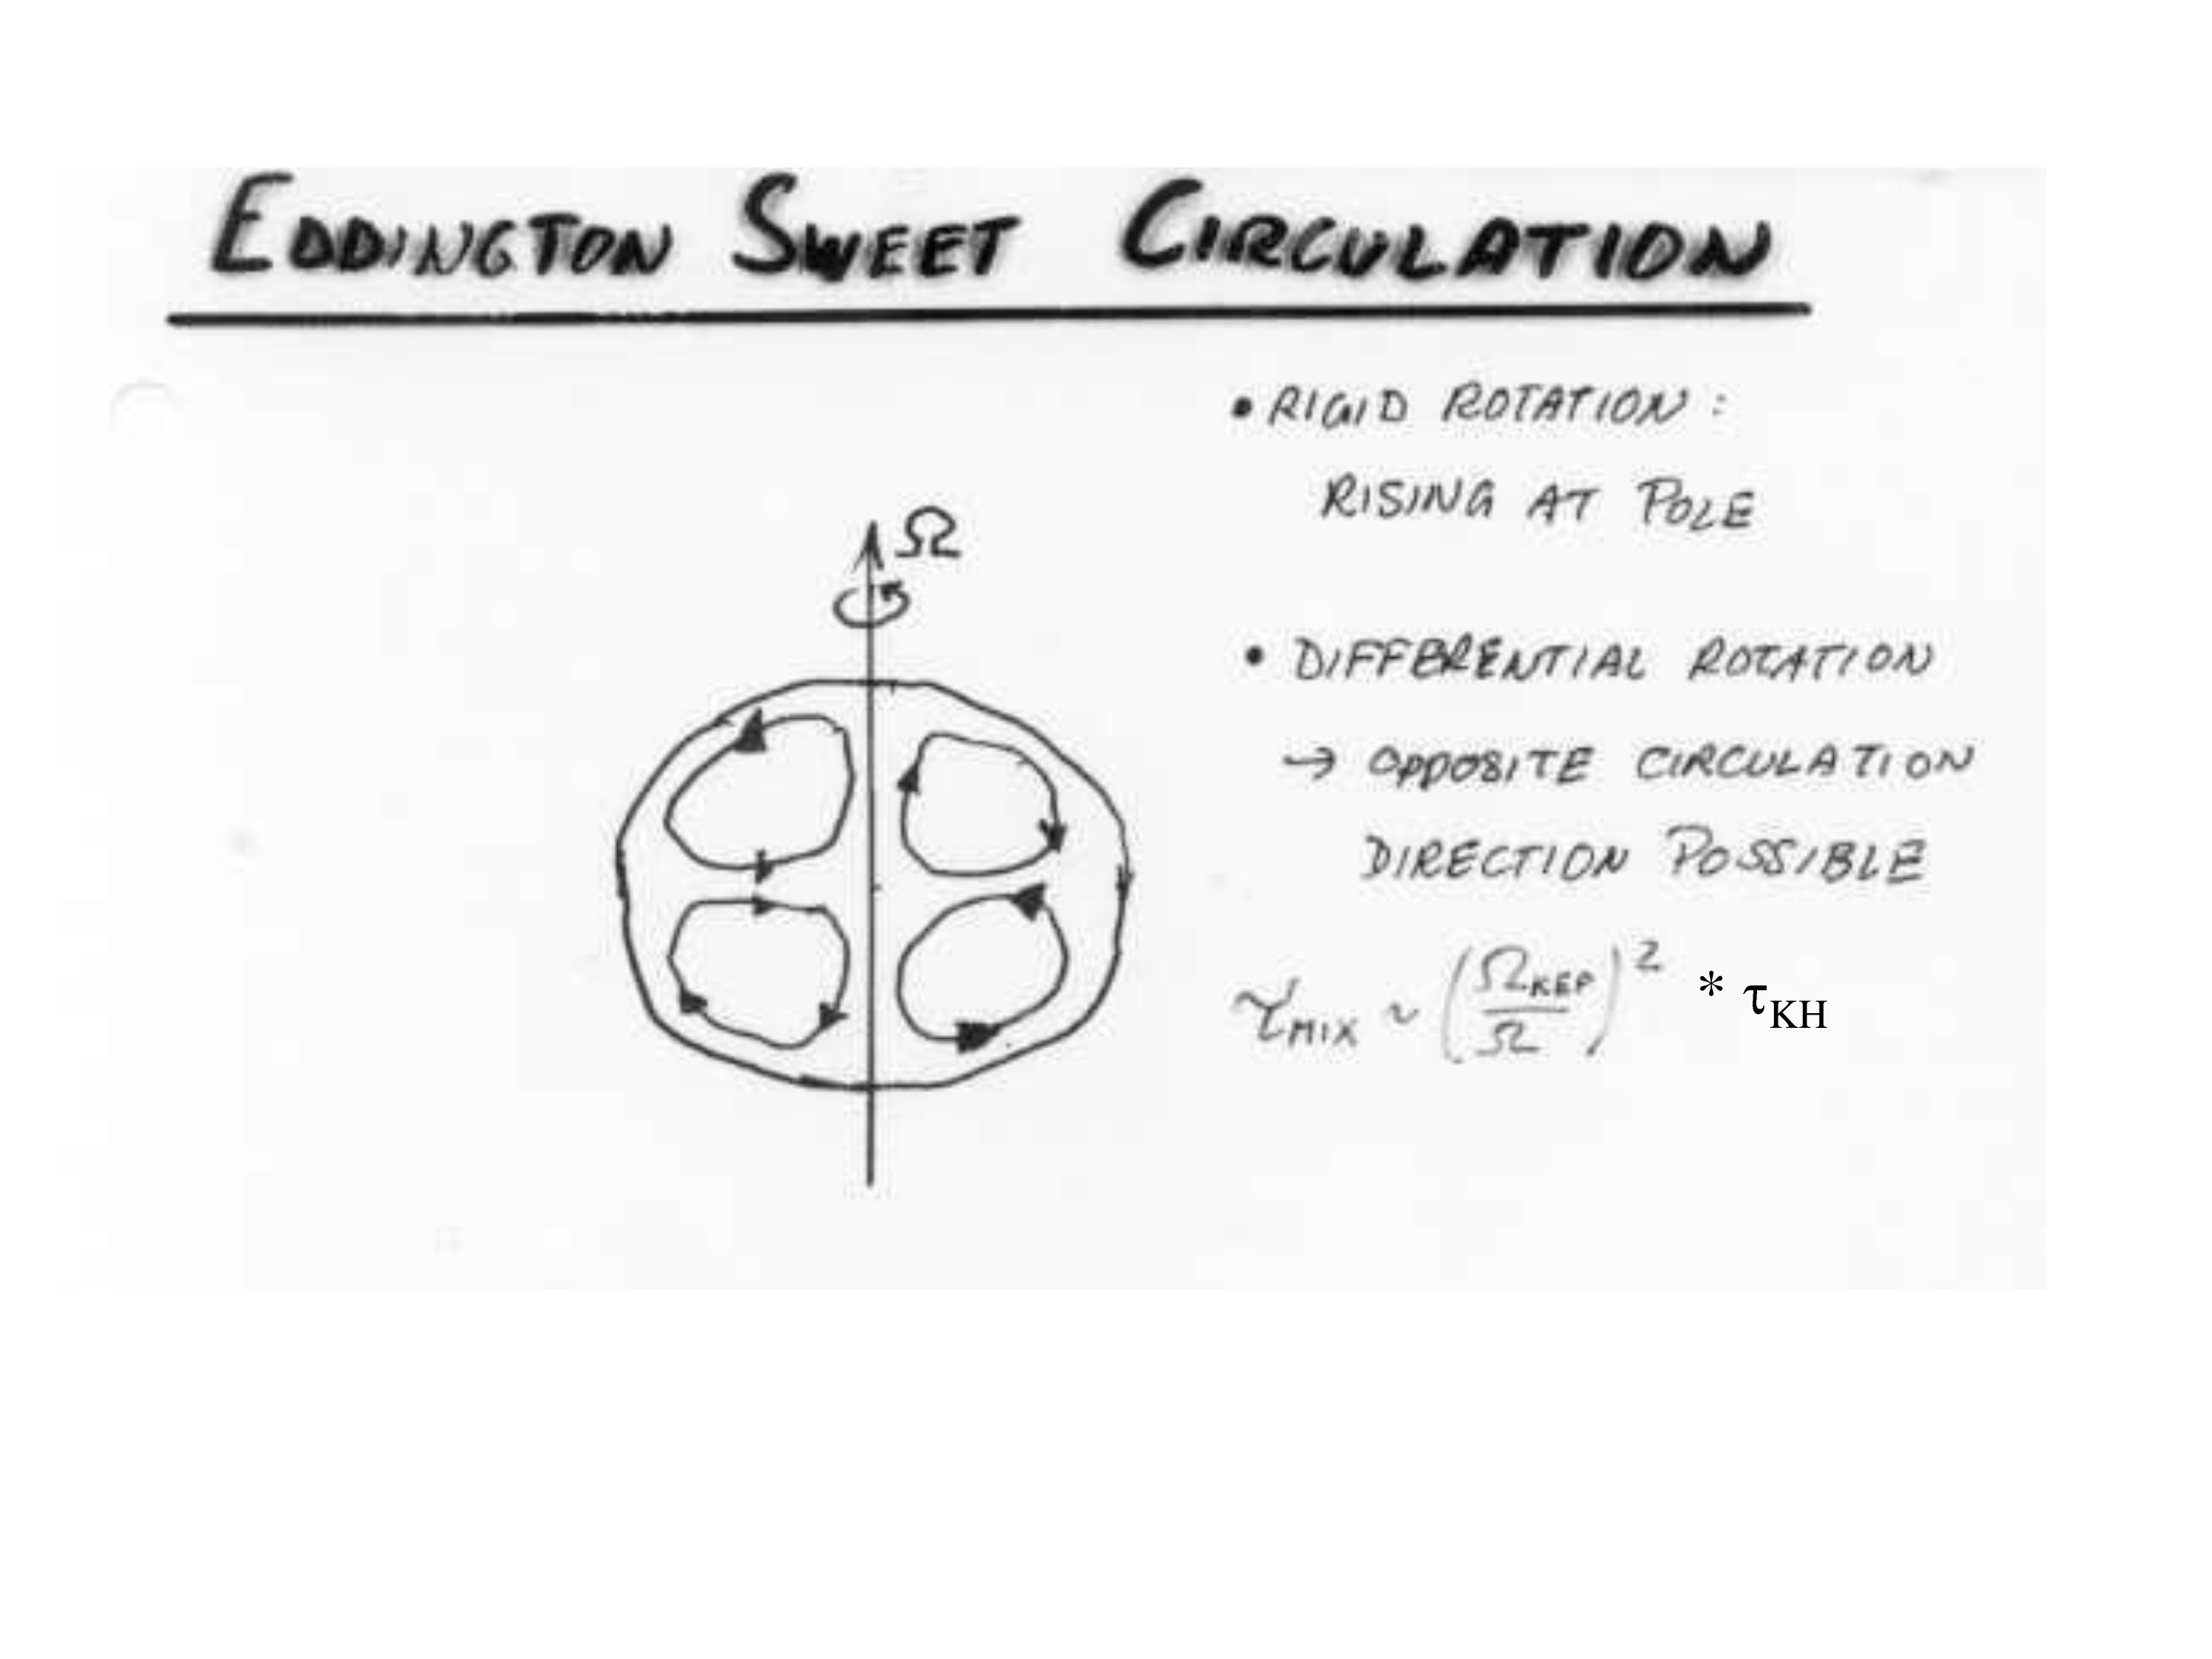 EDDINGTON SWEET CIRCULATION
• RIGID ROTATION:
RISING AT POLE
Ω
• DIFFERENTIAL ROTATION
→ OPPOSITE CIRCULATION
DIRECTION POSSIBLE
τMIX ~ (ΩKEP/Ω)² * τKH